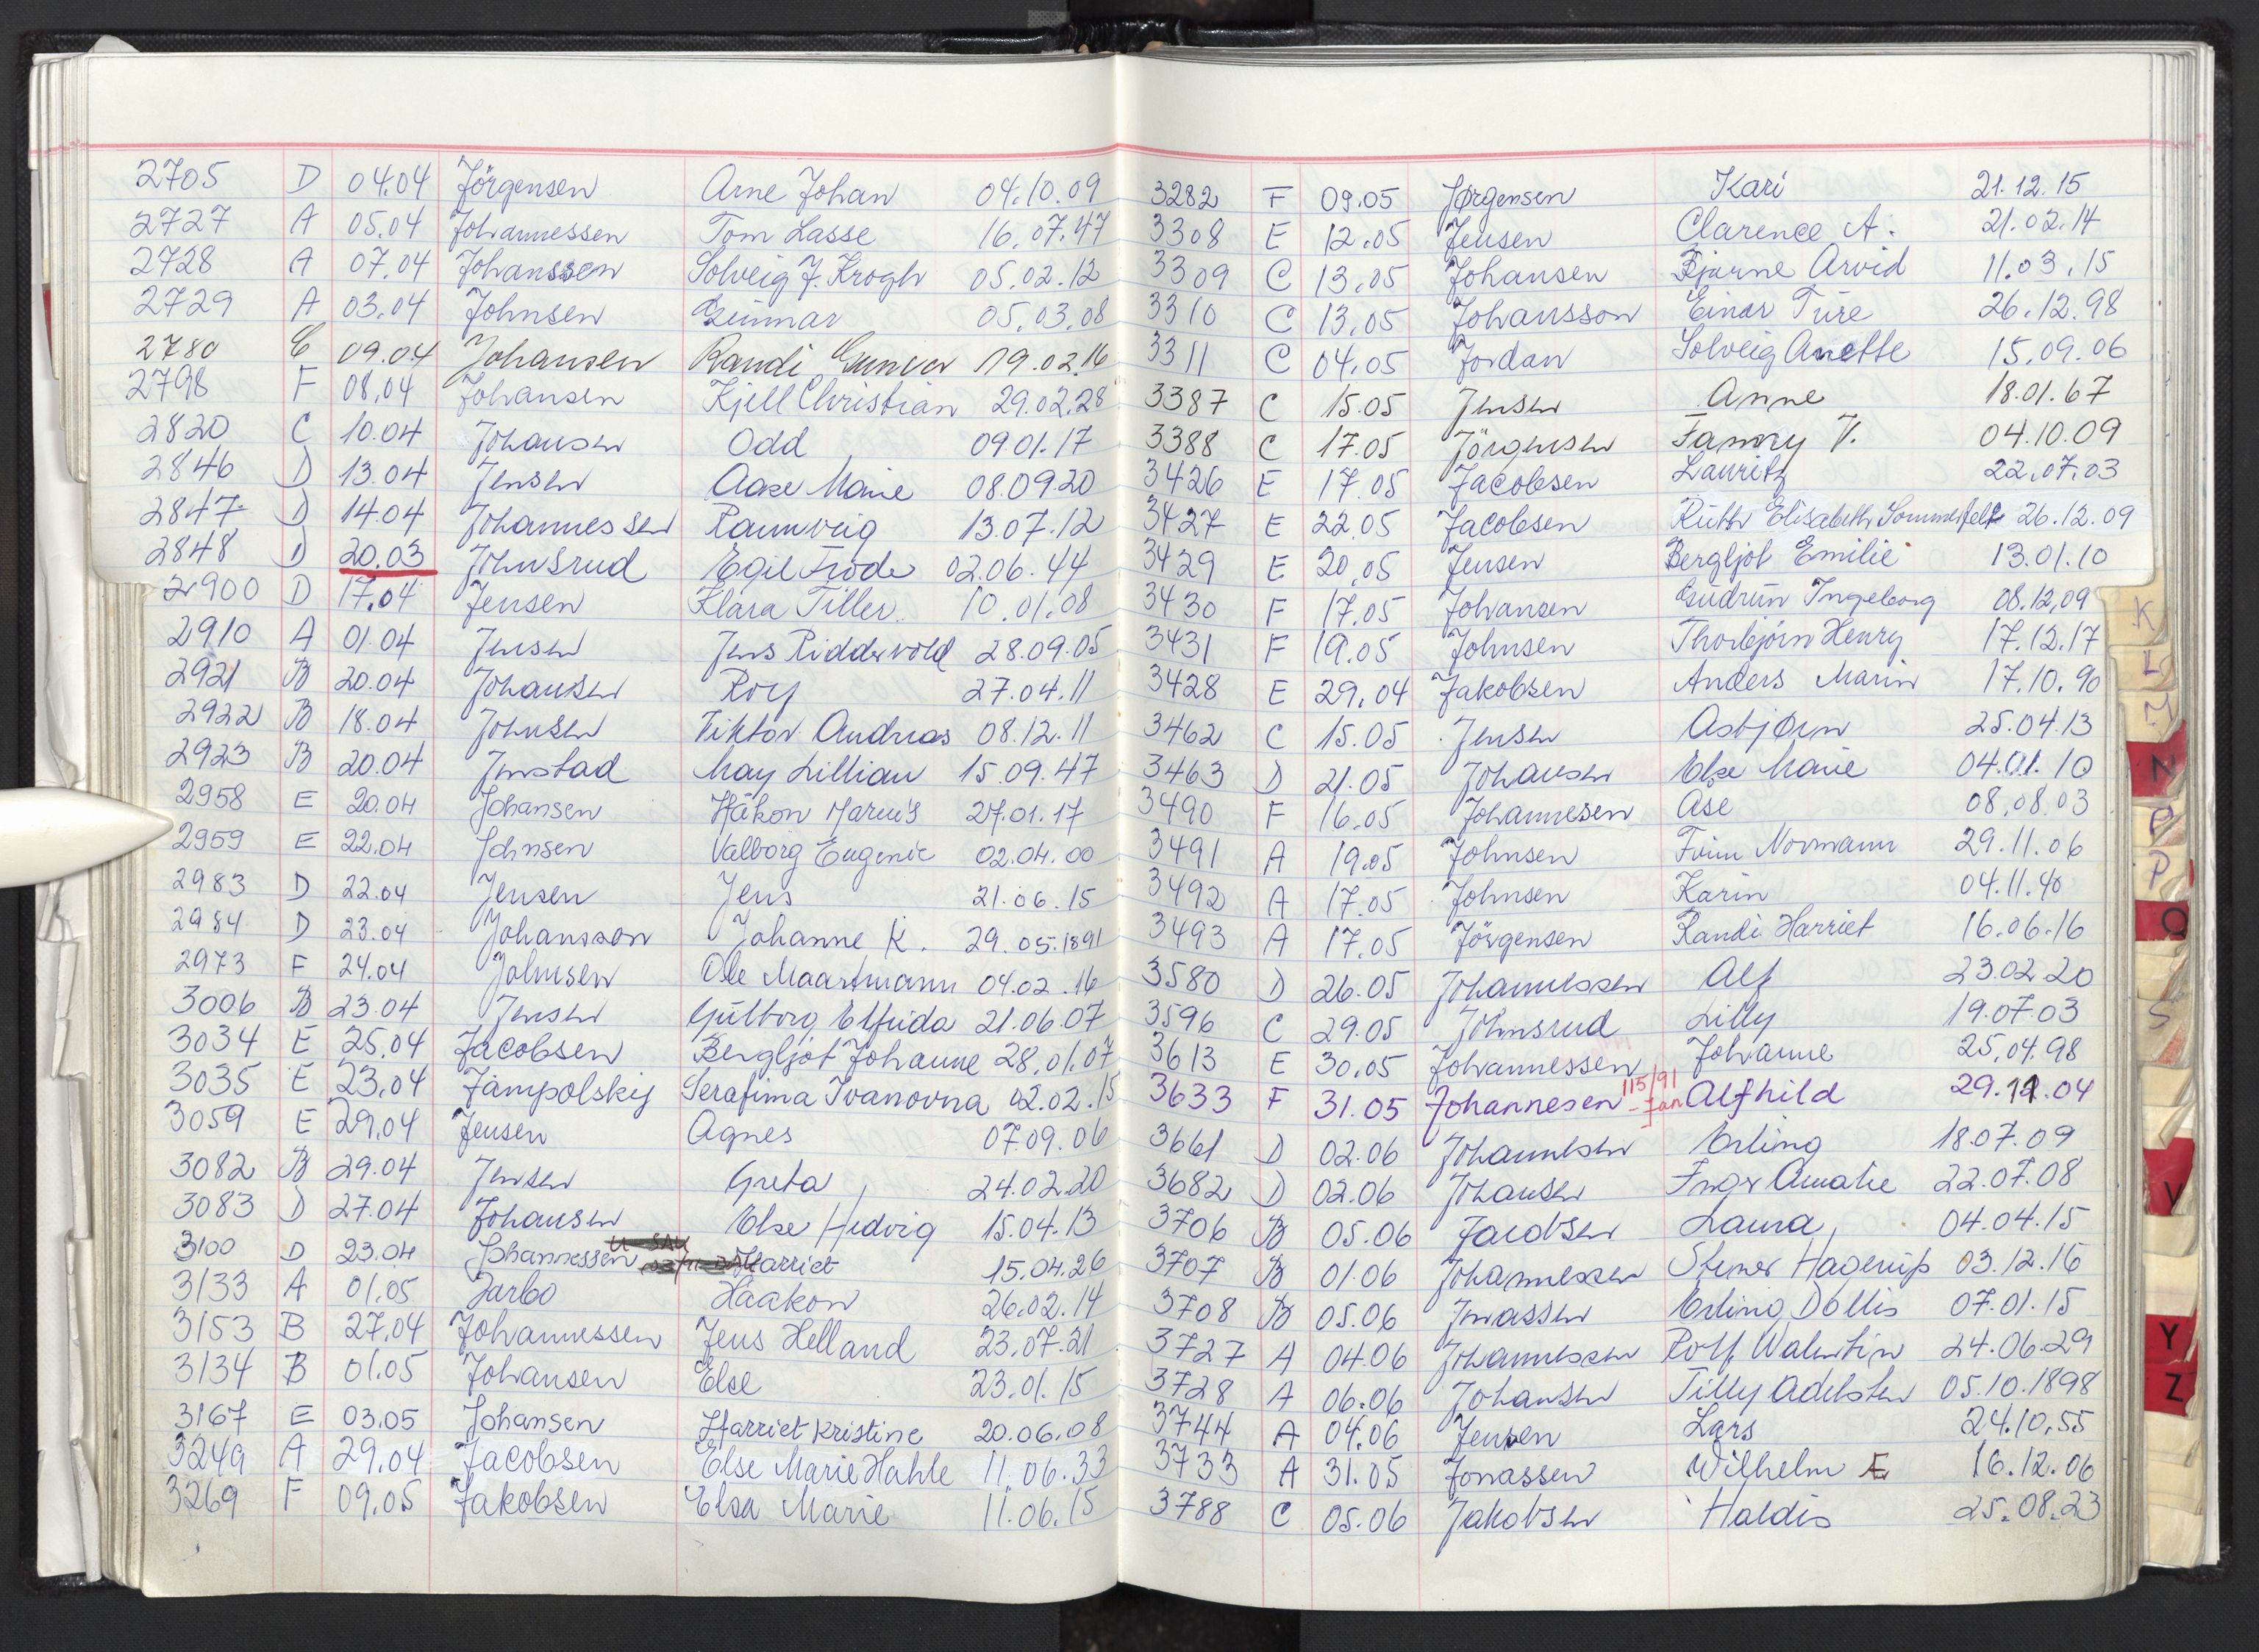 2705 D 04.04 Jörgensen Arne Johan 04.10.09
2727 A 05.04 Johannessen Tom Lasse 16.07.47
2728 A 07.04 Johanssen Solveig J. Krogh 05.02.12
2729 A 03.04 Johnsen Gunnar 05.03.08
2780 E 09.04 Johansen Randi Gunvor 19.02.16
2798 F 08.04 Johansen Kjell Christian 29.02.28
2820 C 10.04 Johansen Odd 09.01.17
2846 D 13.04 Jensen Aase Marie 08.09.20
2847 D 14.04 Johannessen Rannveig 13.07.12
2848 D 20.03 Johnsrud Egil Frode 02.06.44
2900 D 17.04 Jensen Klara Tiller 10.01.08
2910 A 01.04 Jensen Jens Riddervold 28.09.05
2921 B 20.04 Johansen Roy 27.04.11
2922 B 18.04 Johnsen Viktor Andreas 08.12.11
2923 B 20.04 Jenstad May Lillian 15.09.47
2958 E 20.04 Johansen Håkon Marius 27.01.17
2959 E 22.04 Johnsen Valborg Eugenie 02.04.00
2983 D 22.04 Jensen Jens 21.06.15
2984 D 23.04 Johansson Johanne K. 29.05.1891
2973 F 24.04 Johnsen Ole Maartmann 04.02.16
3006 B 23.04 Jensen Gulborg Elfrida 21.06.07
3034 E 25.04 Jacobsen Bergljot Johanne 28.01.07
3035 E 23.04 Jampolskij Serafima Ivanovna 02.02.15
3059 E 29.04 Jensen Agnes 07.09.06
3082 B 29.04 Jensen Greta 24.02.20
3083 D 27.04 Johansen Else Hedvig 15.04.13
3100 D 23.04 Johannessen Harriet 15.04.26
3133 A 01.05 Jarbo Haakon 26.02.14
3153 B 27.04 Johannessen Jens Helland 23.07.21
3134 B 01.05 Johansen Else 23.01.15
3167 E 03.05 Johansen Harriet Kristine 20.06.08
3249 A 29.04 Jacobsen Else Marie Hahle 11.06.33
3269 F 09.05 Jakobsen Elsa Marie 11.06.15
3282 F 09.05 Jørgensen Kari 21.12.15
3308 E 12.05 Jensen Clarence A. 21.02.14
3309 C 13.05 Johansen Bjarne Arvid 11.03.15
3310 C 13.05 Johansson Einar Ture 26.12.98
3311 C 04.05 Jordan Solveig Anette 15.09.06
3387 C 15.05 Jensen Anne 18.01.67
3388 C 17.05 Jörgensen Fanny V. 04.10.09
3426 E 17.05 Jacobsen Lauritz 22.07.03
3427 E 22.05 Jacobsen Ruth Elisabeth Sommerfelt 26.12.09
3429 E 20.05 Jensen Bergljot Emilie 13.01.10
3430 F 17.05 Johansen Gudrun Ingeborg 08.12.09
3431 F 19.05 Johnsen Thorbjørn Henry 17.12.17
3428 E 29.04 Jakobsen Anders Marin 17.10.90
3462 C 15.05 Jensen Asbjørn 25.04.13
3463 D 21.05 Johansen Else Marie 04.01.10
3490 F 16.05 Johannesen Åse 08.08.03
3491 A 19.05 Johnsen Finn Normann 29.11.06
3492 A 17.05 Johnsen Karin 04.11.40
3493 A 17.05 Jörgensen Randi Harriet 16.06.16
3580 D 26.05 Johannessen Alf 23.02.20
3596 C 29.05 Johnsrud Lilly 19.07.03
3613 E 30.05 Johannessen Johanne 25.04.98
3633 F 31.05 Johannesen 115/91 - Jan Alfhild 29.11.04
3661 D 02.06 Johannesen Erling 18.07.09
3682 D 02.06 Johansen Inger Amalie 22.07.08
3706 B 05.06 Jacobsen Laura 04.04.15
3707 B 01.06 Johannessen Steiner Hagerup 03.12.16
3708 B 05.06 Jonassen Erling Dollis 07.01.15
3727 A 04.06 Johannessen Rolf Walentin 24.06.29
3728 A 06.06 Johansen Tilly Adelsten 05.10.1898
3744 A 04.06 Jensen Lars 24.10.55
3733 A 31.05 Jonassen Wilhelm E 16.12.06
3788 C 05.06 Jakobsen Haldis 25.08.23
K
L
M
N
O
P
Q
S
V
Y
Z